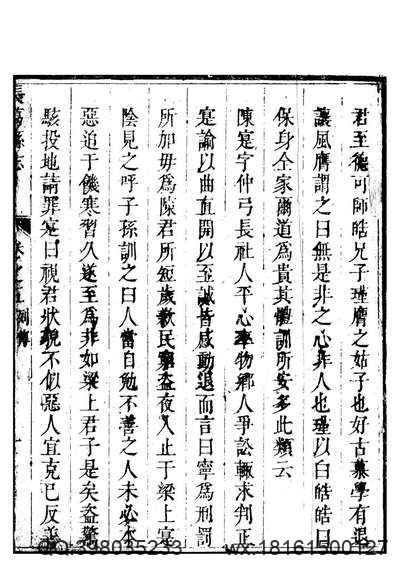 君至德可師皓兄子瑾膺之姑子也好古慕學有退
讓風膺謂之曰無是非之心非人也瑾以白皓皓曰
保身全家爾道為貴其體訓所安多此類云
陳寔字仲弓長社人平心率物鄉人爭訟輒求判正
寔諭以曲直開以至誠皆感動退而言曰寧為刑罰
所加毋為陳君所短歲歉民窮盜夜入止于梁上寔
陰見之呼子孫訓之曰人當自勉不善之人未必本
惡迫于饑寒習久遂至為非如梁上君子是矣盜驚
駭投地請罪寔曰視君狀貌不似惡人宜克己反善
長葛縣志
卷之五 列傳
wx:18161500127